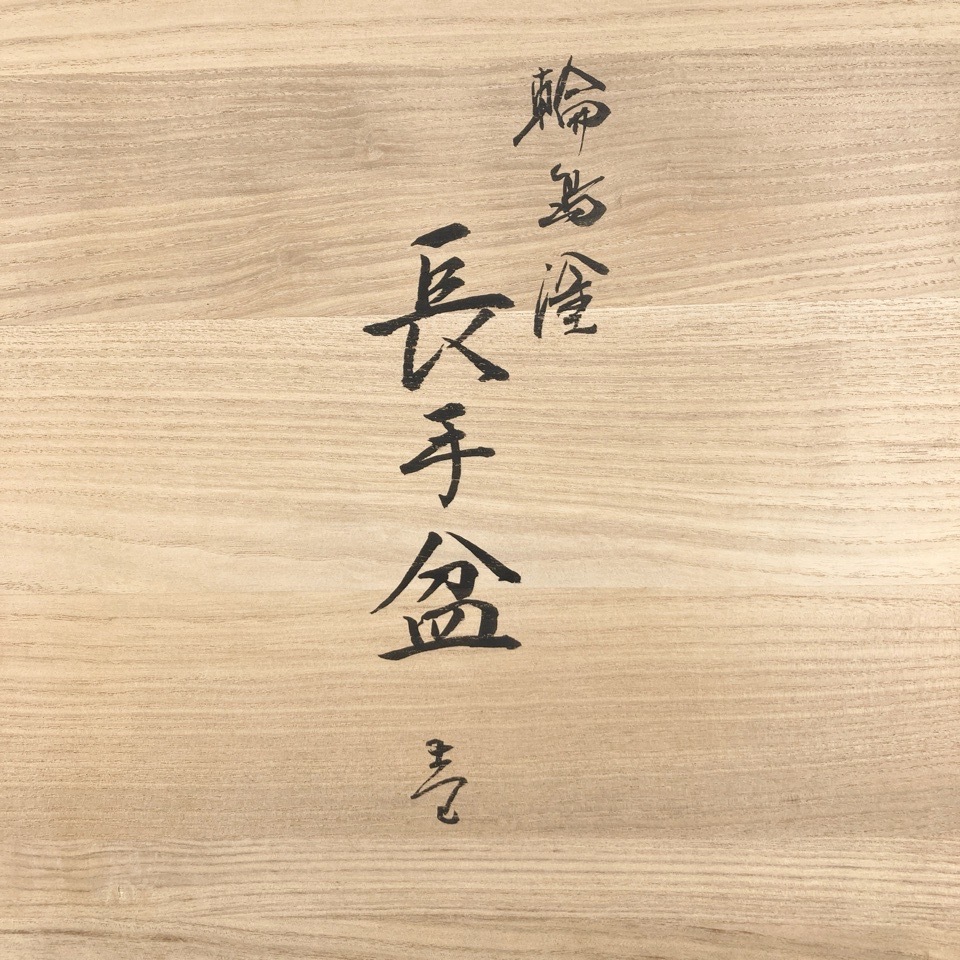 輪島塗
長手盆 壱